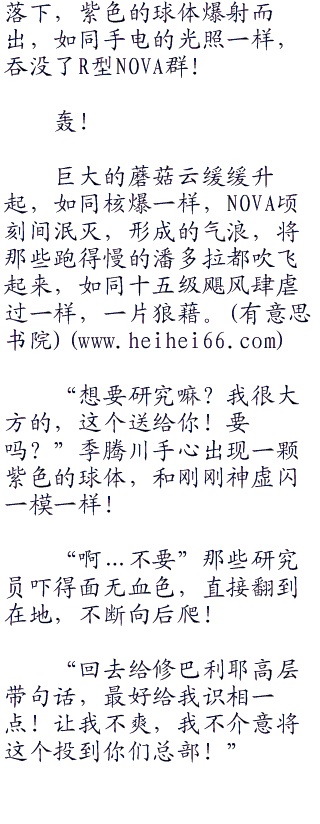 落下，紫色的球体爆射而
出，如同手电的光照一样，
吞没了R型NOVA群！
轰！
巨大的蘑菇云缓缓升
起，如同核爆一样，NOVA顷
刻间泯灭，形成的气浪，将
那些跑得慢的潘多拉都吹飞
起来，如同十五级飓风肆虐
过一样，一片狼藉。(有意思
书院)(www.heihei66.com)
“想要研究嘛？我很大
方的，这个送给你！要
吗？”季腾川手心出现一颗
紫色的球体，和刚刚神虚闪
一模一样！
“啊…不要”那些研究
员吓得面无血色，直接翻到
在地，不断向后爬！
“回去给修巴利耶高层
带句话，最好给我识相一
点！让我不爽，我不介意将
这个投到你们总部！”